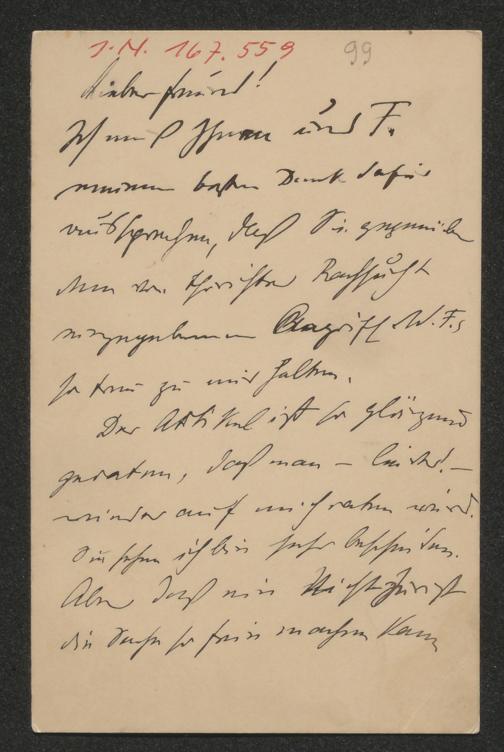 I.N. 167.559
99
Lieber Freund!
Ich muß Ihnen und F.
meinen besten Dank dafür
aussprechen, daß Sie gegenüber
dem von thörichter Rachsucht
eingegebenen Angriff W. F.s
so treu zu mir halten.
Der Artikel ist so glänzend
geraten, daß man – leider! –
wieder auf mich raten wird.
Sie sehen ich bin sehr bescheiden.
Aber daß ein Nichtjurist
die Sache so fein machen kann